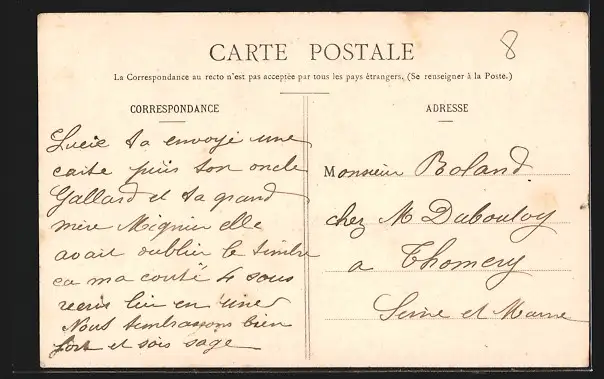 8
CARTE POSTALE
La Correspondance au recto n'est pas acceptée par tous les pays étrangers. (Se renseigner à la Poste.)
CORRESPONDANCE
Lucie ta envoyé une
carte puis ton oncle
Gallard et ta grand
mère Mignier elle
avait oublier le timbre
ca ma couté 4 sous
reeris lui en une
Nous tembrassons bien
fort et sois sage
ADRESSE
Monsieur Boland
chez M Dubouloy
a Thomery
Seine et Marne